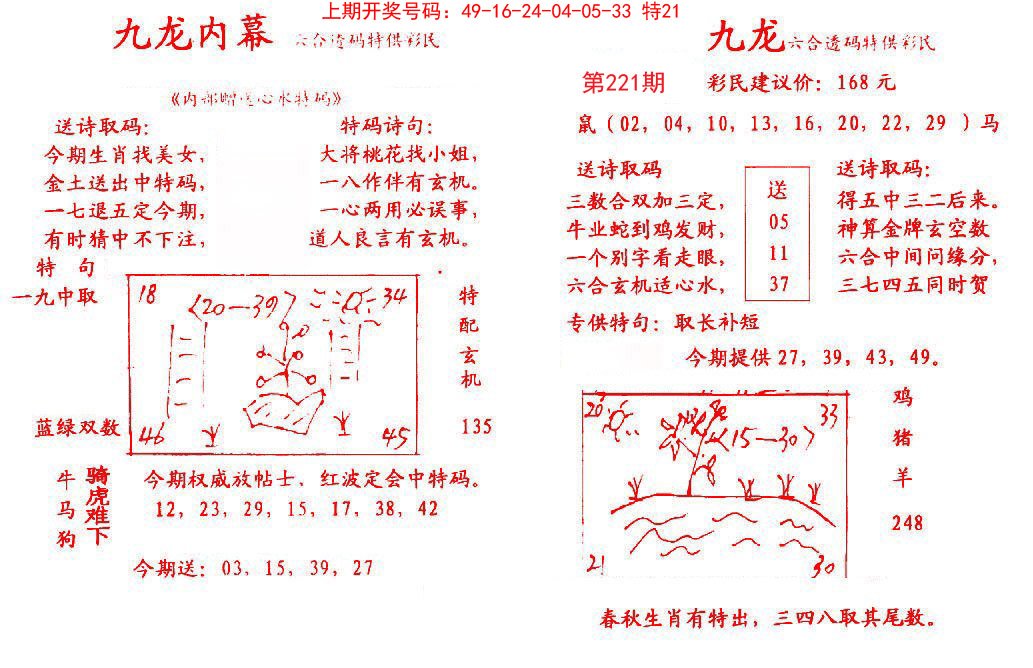 上期开奖号码：49-16-24-04-05-33 特21
九龙内幕 六合透码特供彩民
《内部赠送心水特码》
送诗取码：
今期生肖找美女，
金土送出中特码，
一七退五定今期，
有时猜中不下注，
特码诗句：
大将桃花找小姐，
一八作伴有玄机。
一心两用必误事，
道人良言有玄机。
特 句
一九中取
蓝绿双数
18
〈20—39〉
34
46
45
特配玄机
135
牛马狗
骑虎难下
今期权威放帖士，红波定会中特码。
12，23，29，15，17，38，42
今期送：03，15，39，27
九龙 六合透码特供彩民
第221期 彩民建议价：168 元
鼠（02，04，10，13，16，20，22，29 ）马
送诗取码
三数合双加三定，
牛业蛇到鸡发财，
一个别字看走眼，
六合玄机适心水，
送
05
11
37
送诗取码：
得五中三二后来。
神算金牌玄空数
六合中间问缘分，
三七四五同时贺
专供特句：取长补短
今期提供 27，39，43，49。
20
33
〈15—30〉
21
30
鸡
猪
羊
248
春秋生肖有特出，三四八取其尾数。